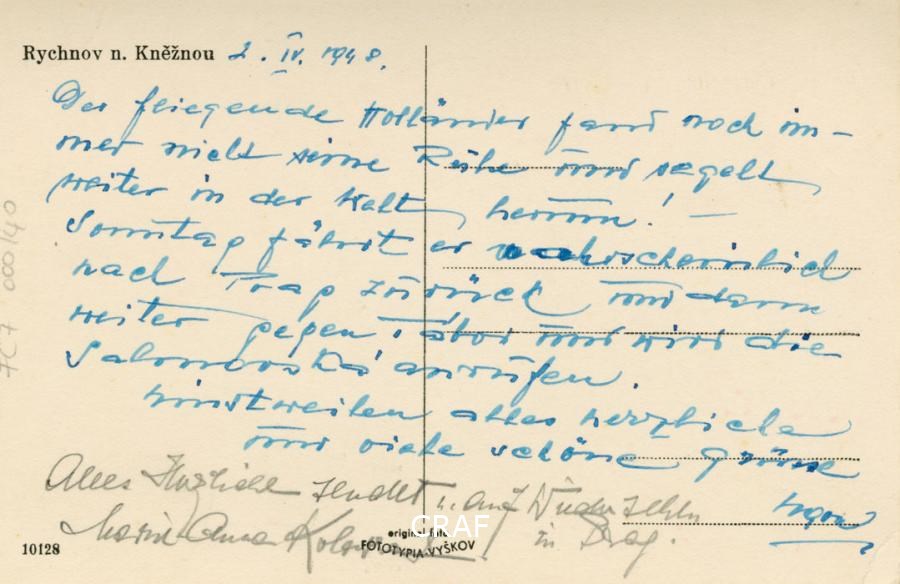 Rychnov n. Kněžnou 2. IV. 1948.
Der fliegende Holländer fand noch im-
mer nicht seine Ruhe und segelt
weiter in der Welt herum! —
Sonntag fährt er wahrscheinlich
nach Prag zurück und dann
weiter gegen Tábor und wird die
anrufen.
Einstweilen alles herzliche
und viele schöne Grüsse
Alles Herzliche sendet u. auf Wiedersehen
Marie Anna in Prag.
10128
original foto
FOTOTYPIA-VYŠKOV
CRAF
7C7 000140